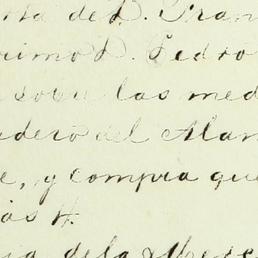 rta de D. Fran
rimo D. Pedro
sobre las med
dero del Alam
e, y compra que
ias H.
ia de la Alberc